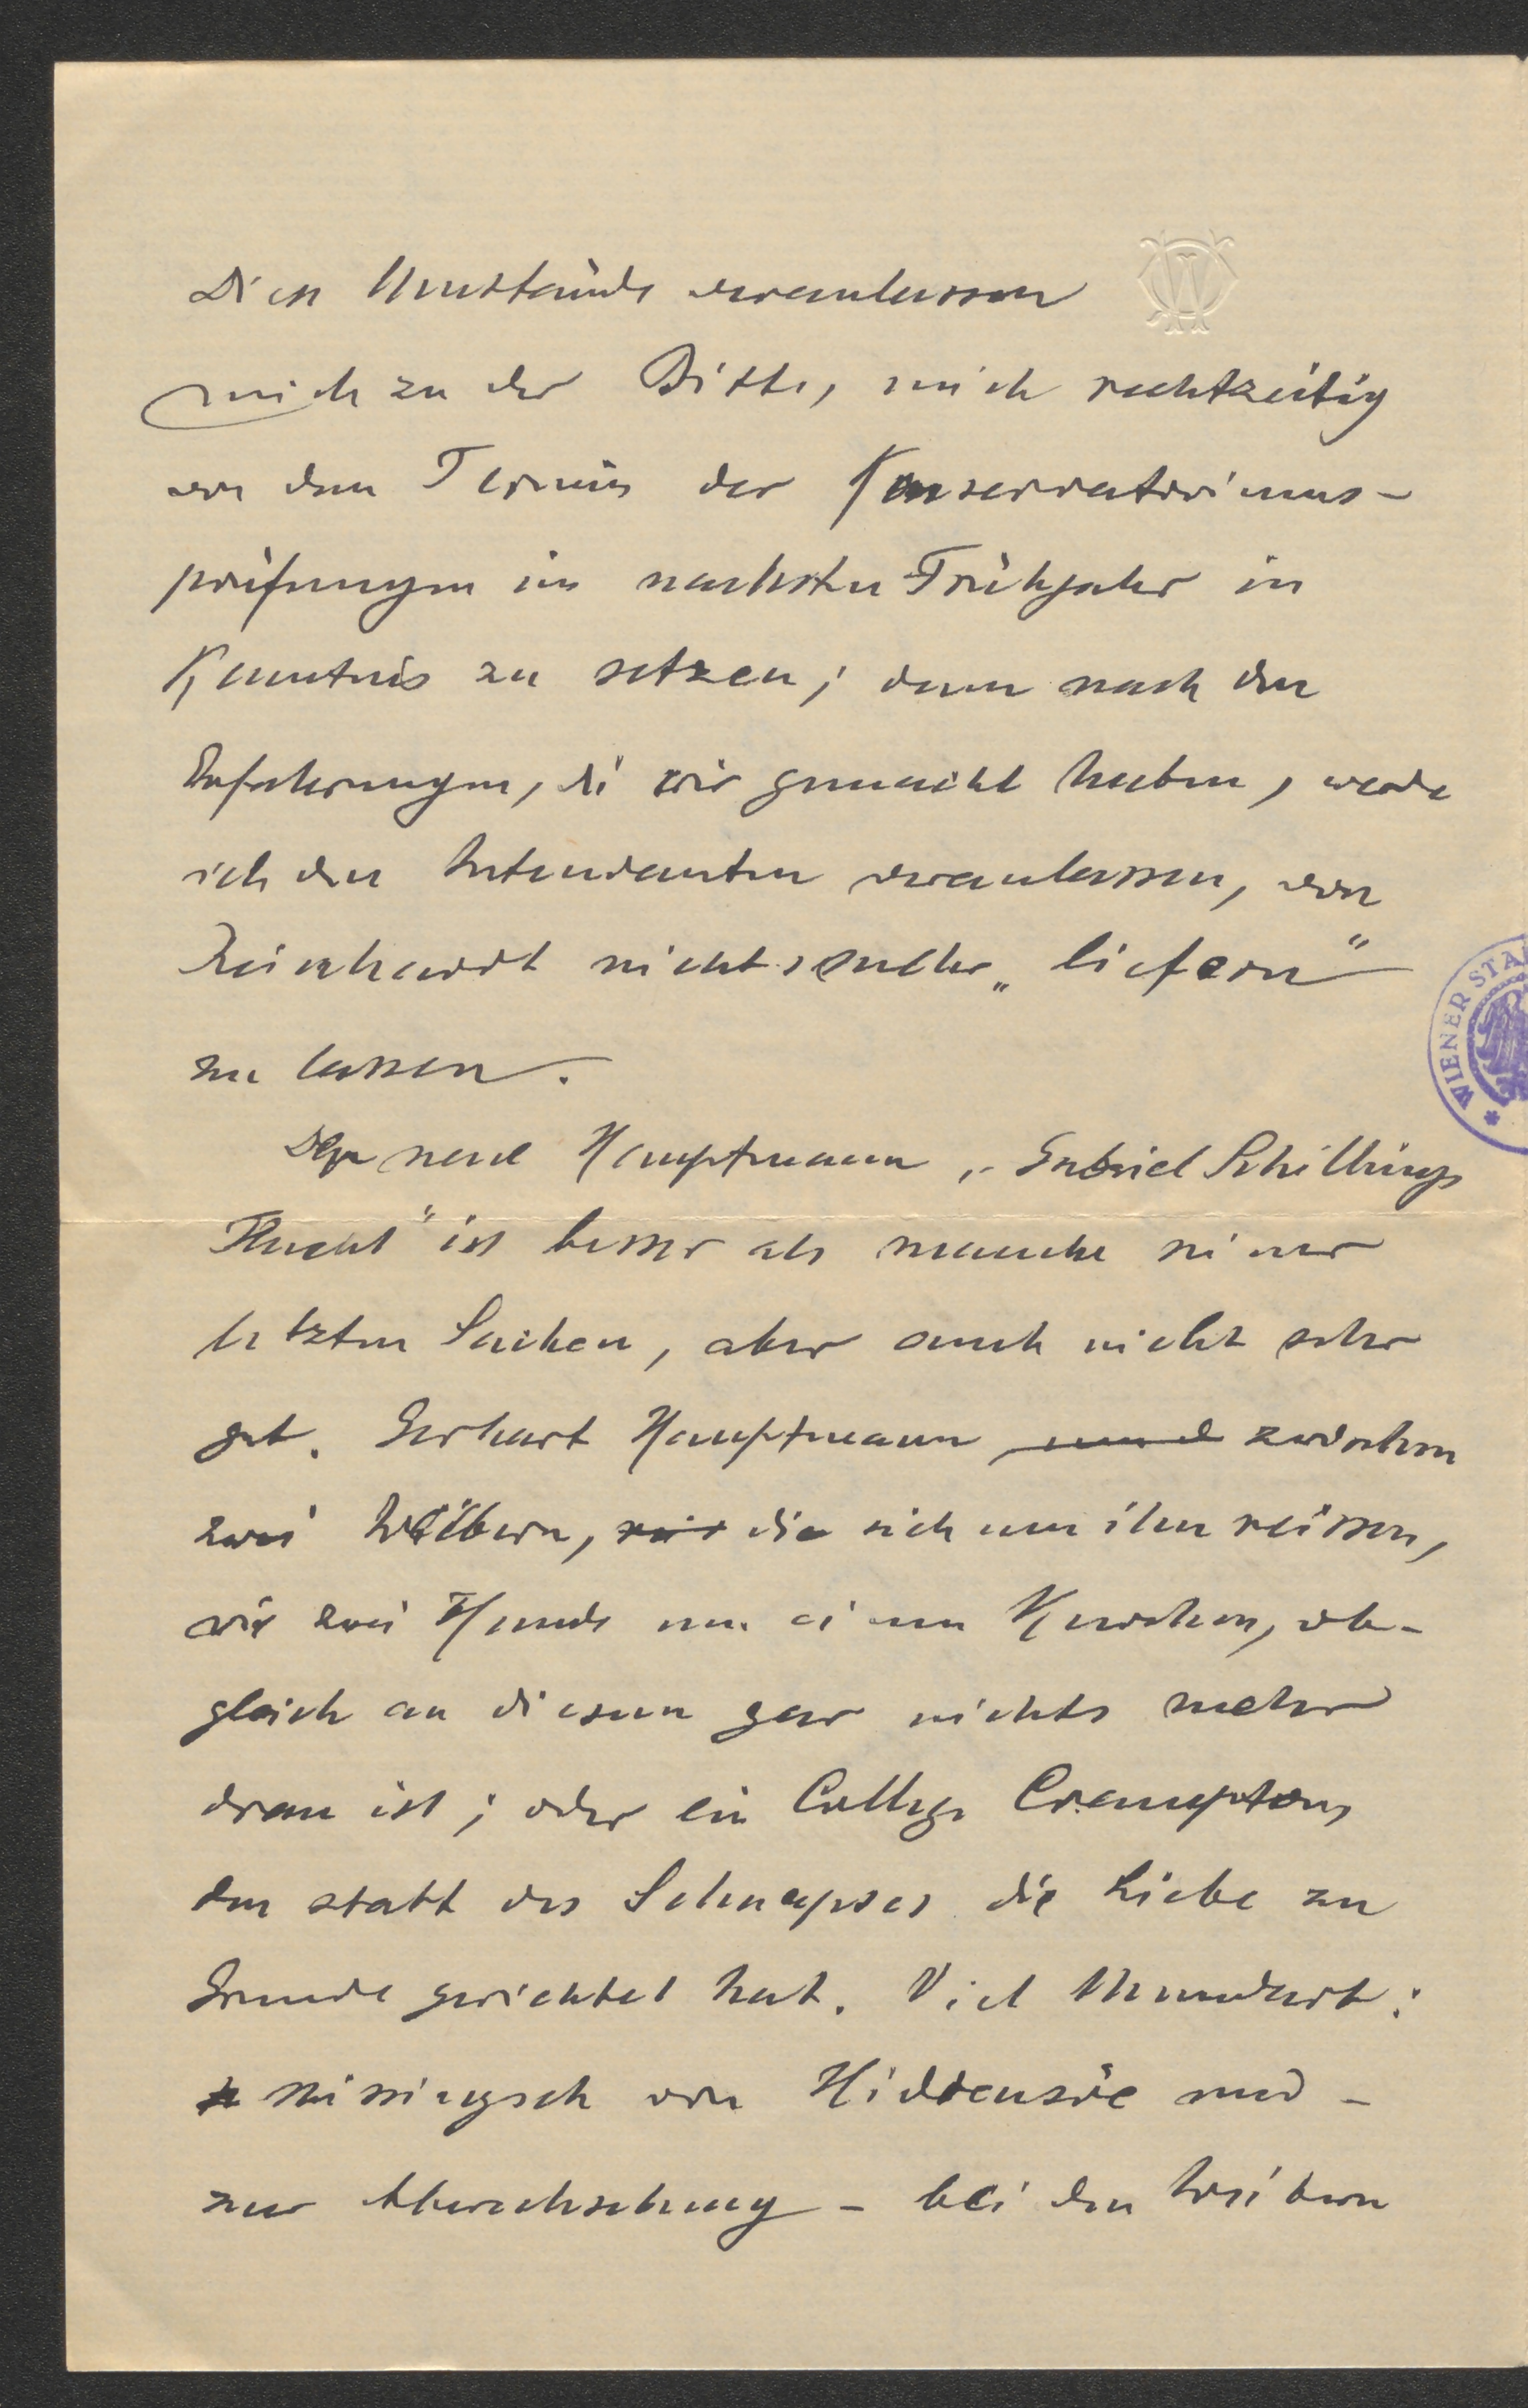 Diese Umstände veranlassen
mich zu der Bitte, mich rechtzeitig
von dem Termin der Konservatoriums-
prüfungen im nächsten Frühjahr in
Kenntnis zu setzen; denn nach den
Erfahrungen, die wir gemacht haben, werde
ich den Intendanten veranlassen, von
Reinhardt nichts mehr „liefern“
zu lassen.
Der neue Hauptmann, „Gabriel Schillings
Flucht“ ist besser als manche seiner
letzten Sachen, aber auch nicht sehr
gut. Gerhart Hauptmann und zwischen
zwei Weibern, die sich um ihn reissen,
wie zwei Hunde um einen Knochen, ob-
gleich an diesem gar nichts mehr
dran ist; oder ein College Cramptons
den statt des Schnapses die Liebe zu
Grunde gerichtet hat. Viel Mundart:
missingsch von Hiddensöe und -
zur Abwechselung - bei den Weibern
WIENER STA